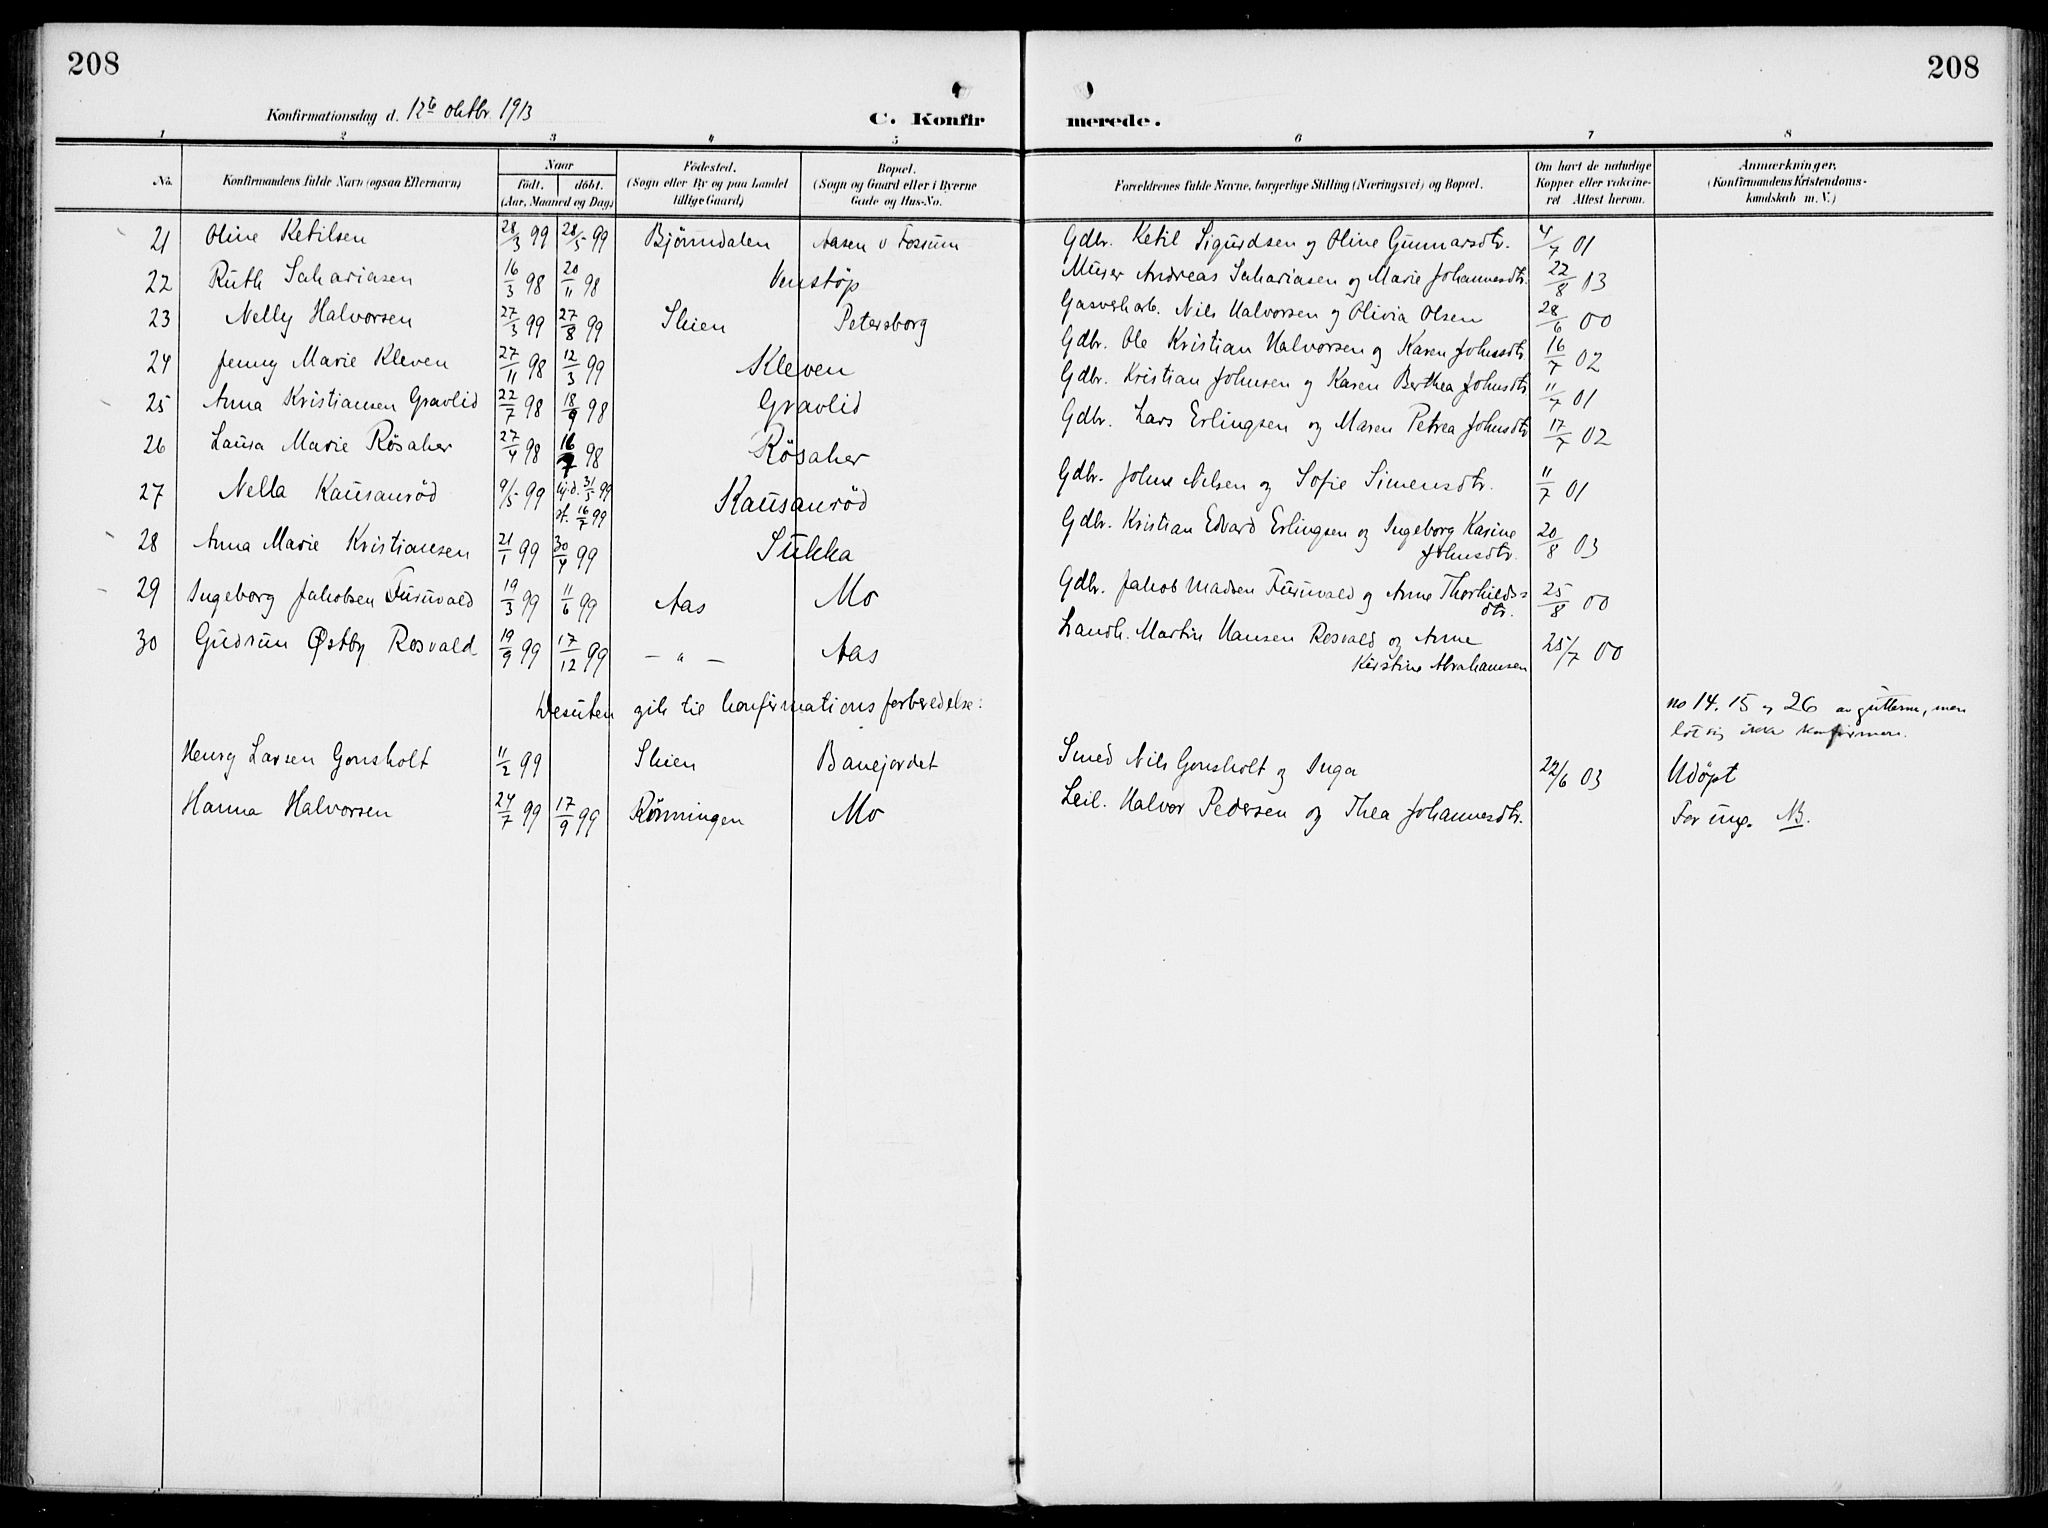 208
208
Konfirmationsdag d. 12te oktbr 1913
C. Konfir
merede.
1 2 3 4 5 6 7 8
No.
Konfirmandens fulde Navn (ogsaa Efternavn)
Naar
født. døbt.
(Aar, Maaned og Dag)
Fødested.
(Sogn eller By og paa Landet
tillige Gaard)
Bopæl.
(Sogn og Gaard eller i Byerne
Gade og Hus-No.
Forældrenes fulde Navne, borgerlige Stilling (Næringsvei) og Bopæl.
Om havt de naturlige
Kopper eller vakcine-
ret Attest herom.
Anmærkninger.
(Konfirmandens Kristendoms-
kundskab m. V.)
21 Oline Ketilsen 28/3 99 28/5 99 Bjørndalen Aasen v Fossum Gdbr. Ketil Sigurdsen og Oline Gunnarsdtr. 4/7 01
22 Ruth Sakariasen 16/3 98 20/11 98 Venstøp Murer Andreas Sakariasen og Marie Johannesdtr. 22/8 03
23 Nelly Halvorsen 27/3 99 27/8 99 Skien Petersborg Gasverkarb. Nils Halvorsen og Olivia Olsen 28/6 00
24 Jenny Marie Kleven 27/11 98 12/3 99 Kleven Gdbr. Ole Kristian Halvorsen og Karen Johnsdtr 16/7 02
25 Anna Kristiansen Gravlid 22/7 98 18/9 98 Gravlid Gdbr. Kristian Johnsen og Karen Berthea Johnsdtr 11/7 01
26 Laura Marie Røsaker 27/4 98 16/7 98 Røsaker Gdbr. Lars Erlingsen og Maren Petrea Johnsdtr 17/7 02
27 Nella Kausanrød 9/5 99 hj.d. 31/5 99 Kausanrød Gdbr. Johne Nelsen og Sofie Simensdtr. 11/7 01
st. 16/7 99
28 Anna Marie Kristiansen 21/1 99 30/4 99 Sukka Gdbr. Kristian Edvard Erlingsen og Ingeborg Karine 20/8 03
Johnsdtr.
29 Ingeborg Jakobsen Furuvald 19/3 99 11/6 99 Aas Mo Gdbr. Jakob Madsen Furuvald og Anne Thorkilds= 25/8 00
dtr.
30 Gudrun Østby Rosvald 19/9 99 17/12 99 — " — Aas Landh. Martin Hansen Rosvald og Anne 25/7 00
Kirstine Abrahamsen
Desuten gik til konfirmationsforberedelse: no 14. 15 og 26 av gutterne, men
lot sig ikke konfirmere.
Henry Larsen Gonsholt 11/2 99 Skien Banejordet Smed Nils Gonsholt og Inga 22/6 03 Udøpt
Hanna Halvorsen 24/7 99 17/9 99 Rønningen Mo Leil. Halvor Pedersen og Thea Johannesdtr. For ung. NB.